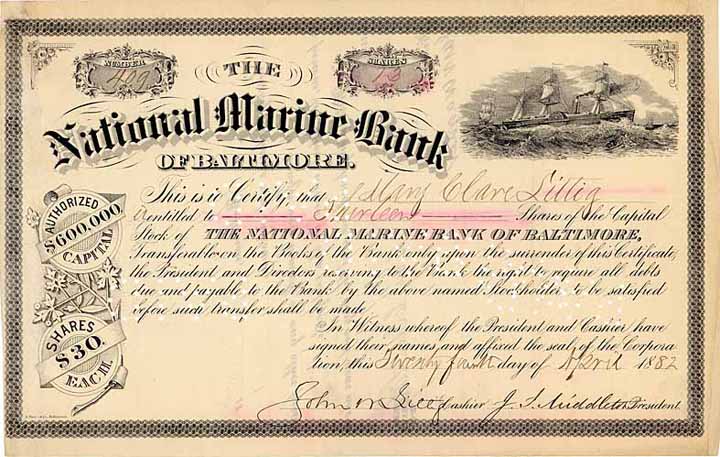 NUMBER
409
THE
SHARES
13
National Marine Bank
OF BALTIMORE.
This is to Certify, that Mary Clare Littig
is entitled to Thirteen Shares of the Capital
Stock of THE NATIONAL MARINE BANK OF BALTIMORE,
Transferable on the Books of the Bank only upon the surrender of this Certificate,
the President and Directors reserving to the Bank the right to require all debts
due and payable to the Bank by the above named Stockholder to be satisfied
before such transfer shall be made.
In Witness whereof the President and Cashier have
signed their names, and affixed the seal of the Corpora-
tion, this Twenty fourth day of April 1882
John M Cashier J. S. Middleton President.
AUTHORIZED
$600,000
CAPITAL
SHARES
$30.
EACH.